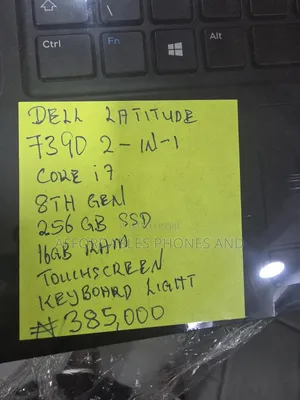 Ctrl Fn Alt
DELL LATITUDE
7390 2-IN-1
CORE i7
8TH GEN
256 GB SSD
16GB RAM
AFFORDABLES PHONES AND
TOUCHSCREEN
KEYBOARD LIGHT
₦385,000